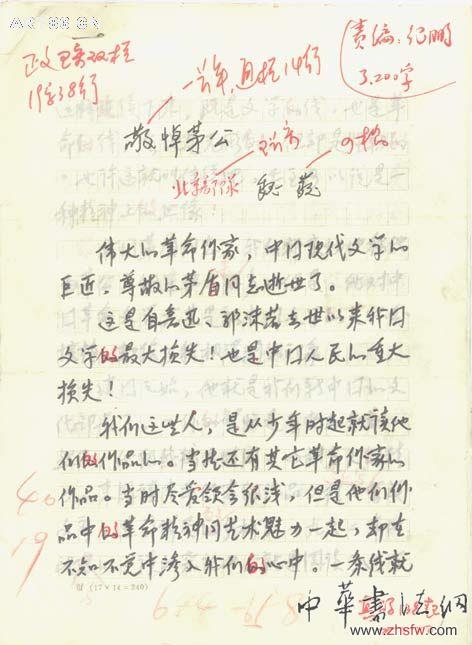 责编：纪鹏
3.200字
19字38行
敬悼茅公
北京部队 魏巍
伟大的革命作家，中国现代文学的
巨匠，尊敬的茅盾同志逝世了。
这是自鲁迅、郭沫若去世以来我国
文学的最大损失！也是中国人民的重大
损失！
我们这些人，是从少年时起就读他
们的作品的。当然还有其它革命作家的
作品。当时尽管领会很浅，但是他们作
品中的革命精神同艺术魅力一起，却在
不知不觉中渗入我们的心中。一条线就
40
19
(17×14=240)
中華書法網
www.zhsfw.com